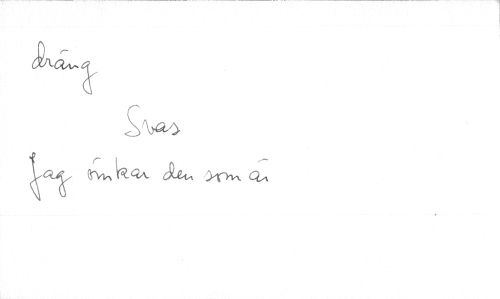 dräng
Svas
Jag ömkar den som är